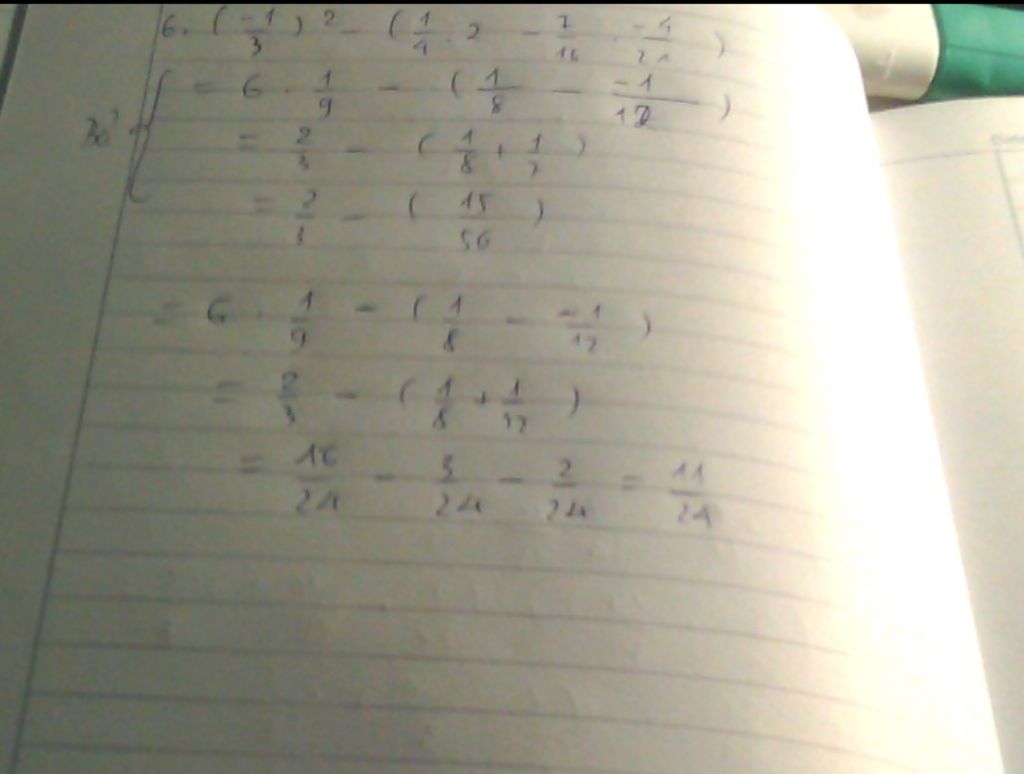 6. (-1/3)² - (1/4 . 2 - 7/16 . -4/21)
= 6 . 1/9 - (1/8 - -1/12)
= 2/3 - (1/8 + 1/7)
= 2/3 - (15/56)
= 6 . 1/9 - (1/8 - -1/12)
= 2/3 - (1/8 + 1/12)
= 16/24 - 3/24 - 2/24 = 11/24